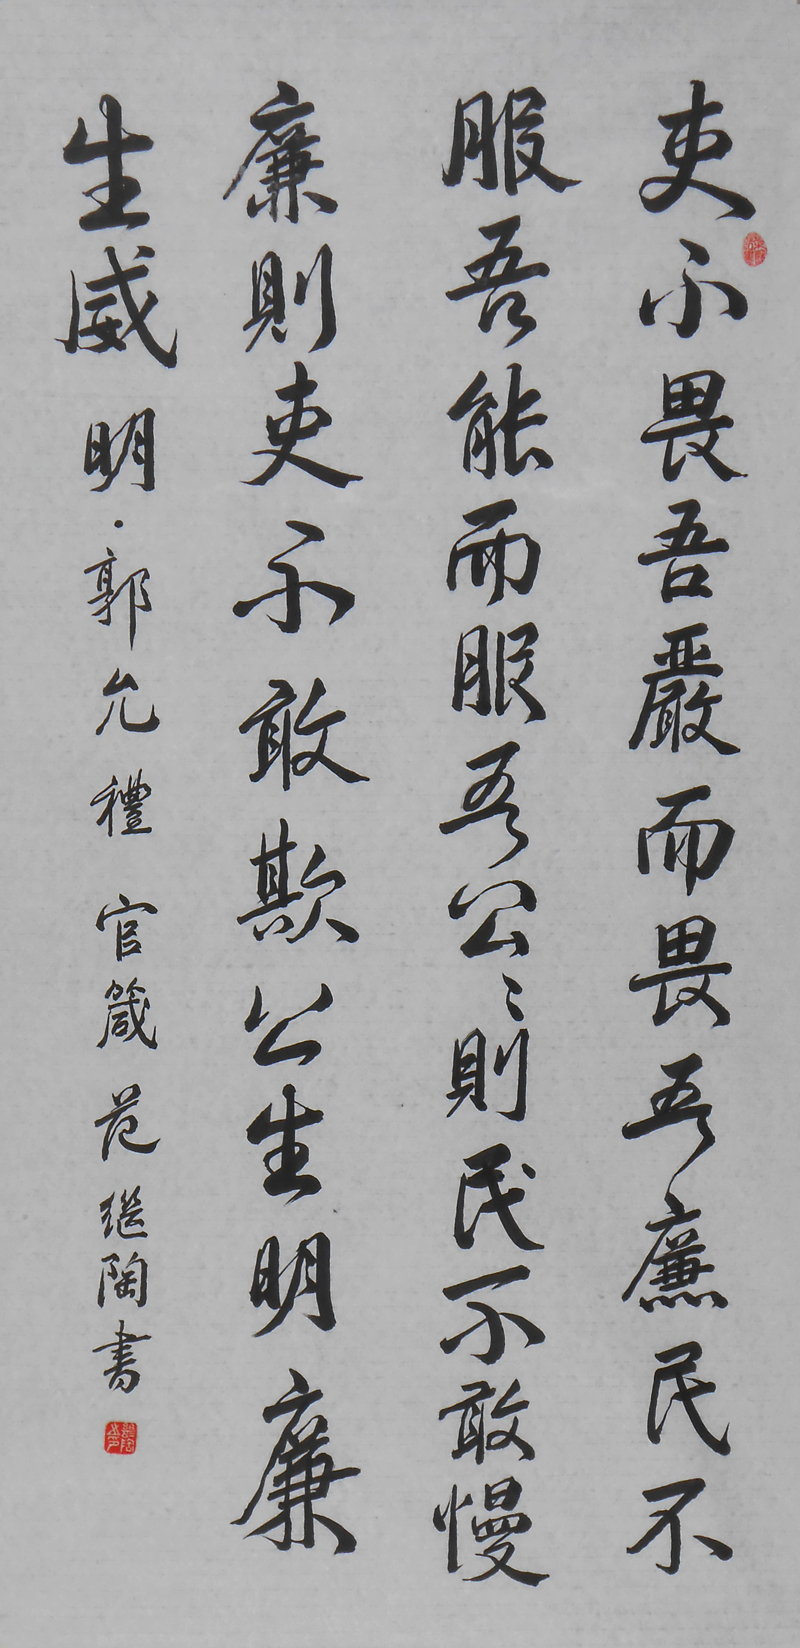 吏不畏吾嚴而畏吾廉民不
服吾能而服吾公〻則民不敢慢
廉則吏不敢欺公生明廉
生威 明·郭允禮 官箴 范繼陶書